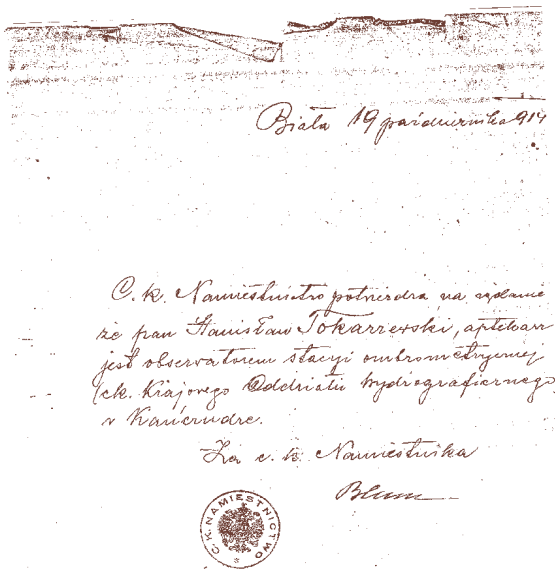 Biała 19 października 914
C. k. Namiestnictwo potwierdza na żądanie
że pan Stanisław Tokarzewski, aptekarz
jest obserwatorem stacyi ombrometrycznej
(ck. Krajowego Oddziału hydrograficznego)
w Kańczudze.
Za c. k. Namiestnika
Blum
C. K. NAMIESTNICTWO